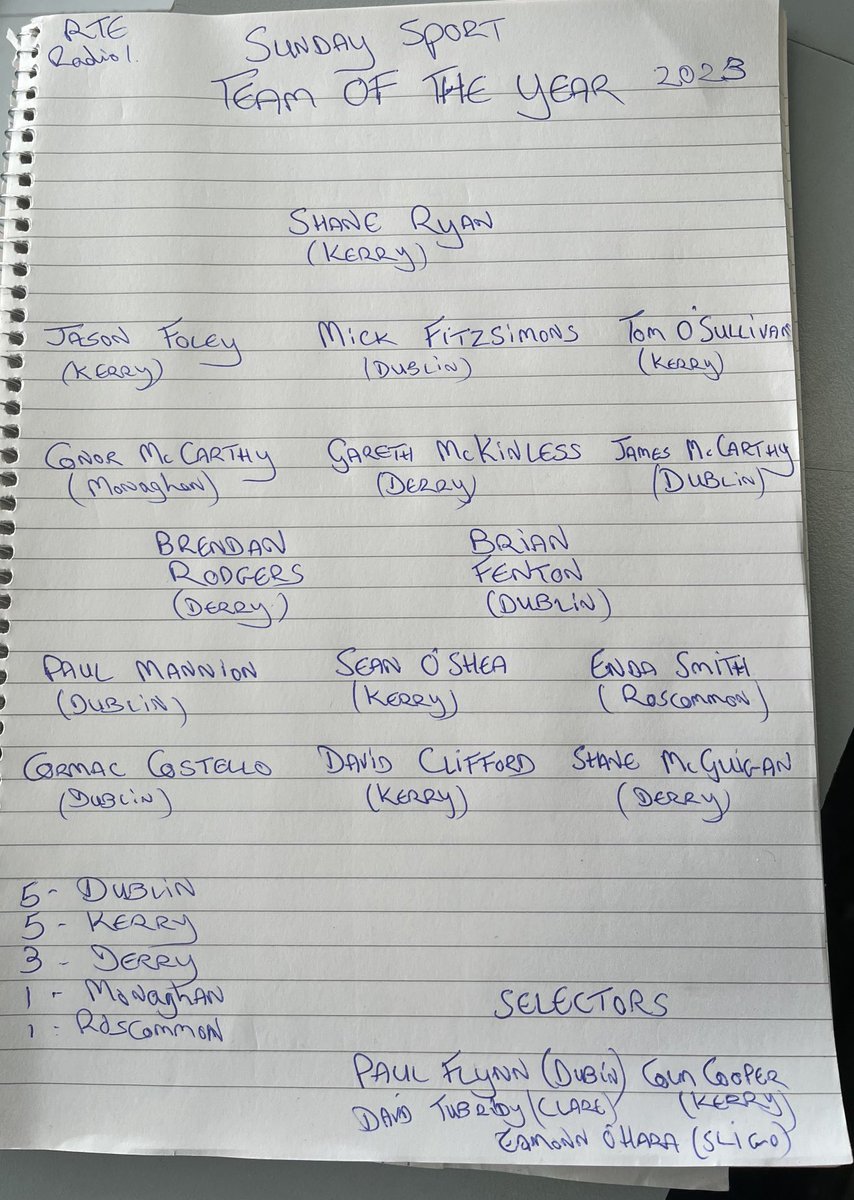 RTE
Radio 1.
SUNDAY SPORT
TEAM OF THE YEAR 2023
SHANE RYAN
(KERRY)
JASON FOLEY MICK FITZSIMONS TOM O'SULLIVAN
(KERRY) (DUBLIN) (KERRY)
CONOR McCARTHY GARETH McKINLESS JAMES McCARTHY
(Monaghan) (DERRY) (DUBLIN)
BRENDAN BRIAN
RODGERS FENTON
(DERRY) (DUBLIN)
PAUL MANNION SEAN O'SHEA ENDA SMITH
(DUBLIN) (KERRY) (ROSCOMMON)
CORMAC COSTELLO DAVID CLIFFORD SHANE McGUIGAN
(DUBLIN) (KERRY) (DERRY)
5 - DUBLIN
5 - KERRY
3 - DERRY
1 - Monaghan
1 - ROSCOMMON
SELECTORS
PAUL FLYNN (DUBIN) COLM COOPER
DAVID TUBRIDY (CLARE) (KERRY)
EAMONN O'HARA (SLIGO)